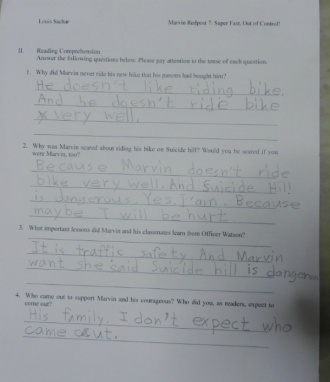 Louis Sachar Marvin Redpost 7: Super Fast, Out of Control!
II. Reading Comprehension
Answer the following questions below. Please pay attention to the tense of each question.
1. Why did Marvin never ride his new bike that his parents had bought him?
He doesn't like riding bike.
And he doesn't ride bike
very well.
2. Why was Marvin scared about riding his bike on Suicide hill? Would you be scared if you
were Marvin, too?
Because Marvin doesn't ride
bike very well. And Suicide Hill
is dangerous. Yes. I am. Because
maybe I will be hurt
3. What important lessons did Marvin and his classmates learn from Officer Watson?
It is traffic safety. And Marvin
want she said suicide hill is dangerou
4. Who came out to support Marvin and his courageous? Who did you, as readers, expect to
come out?
His family. I don't expect who
came out.